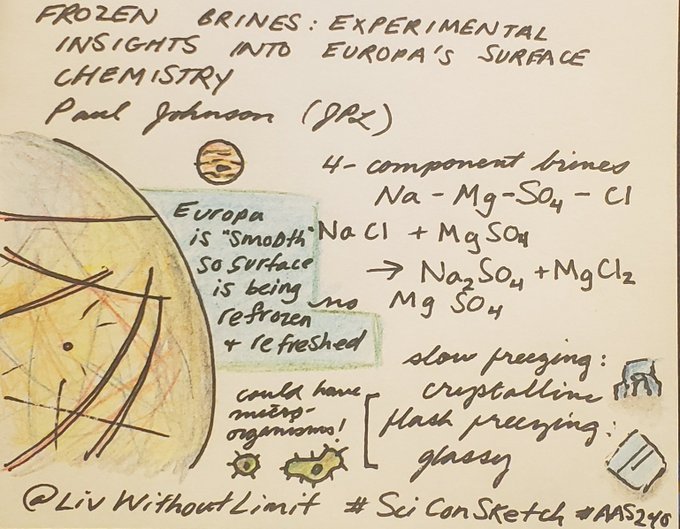 FROZEN BRINES: EXPERIMENTAL
INSIGHTS INTO EUROPA'S SURFACE
CHEMISTRY
Paul Johnson (JPL)
4-component brines
Na - Mg-SO4 - Cl
NaCl + MgSO4
→ Na2SO4 + MgCl2
no MgSO4
Europa
is "smooth"
so surface
is being
refrozen
+ refreshed
slow freezing:
crystalline
flash freezing:
glassy
could have
micro-
organisms!
@LivWithoutLimit #SciConSketch #AAS240